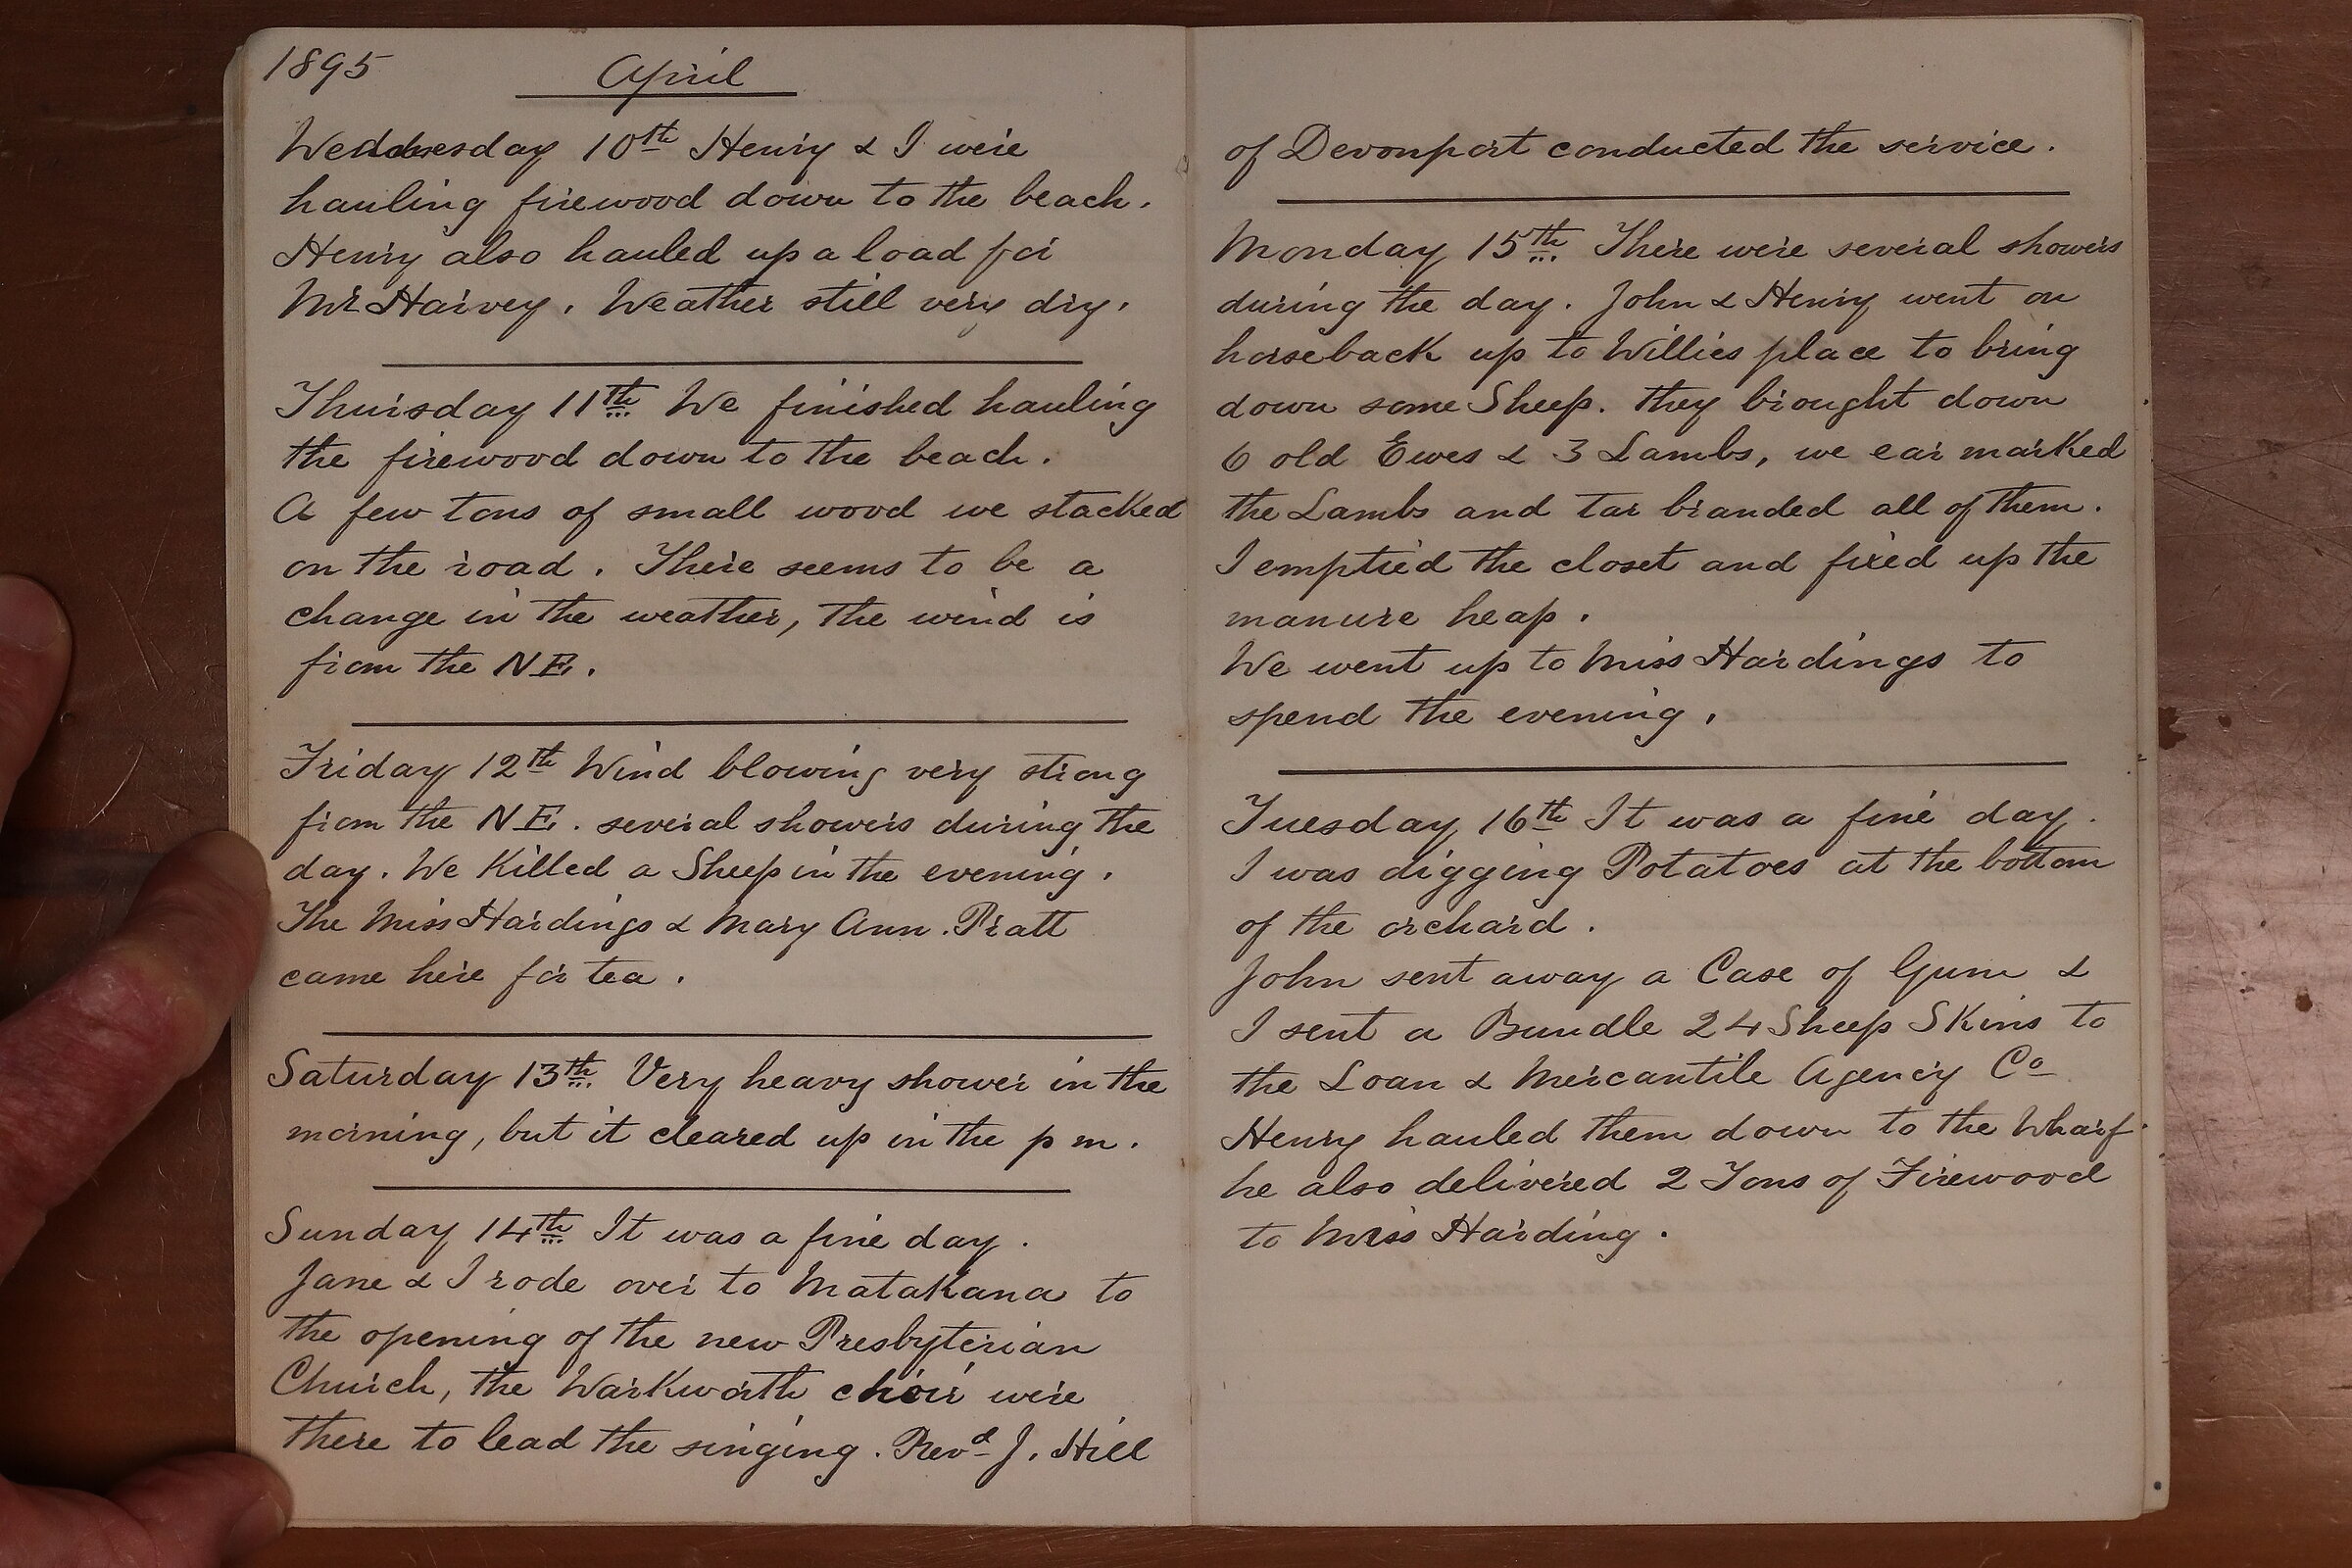 1895 April
Wednesday 10th Henry & I were
hauling firewood down to the beach.
Henry also hauled up a load for
Mr Harvey. Weather still very dry.
Thursday 11th We finished hauling
the firewood down to the beach.
A few tons of small wood we stacked
on the road. There seems to be a
change in the weather, the wind is
from the NE.
Friday 12th Wind blowing very strong
from the NE. several showers during the
day. We Killed a Sheep in the evening.
The Miss Hardings & Mary Ann. Pratt
came here for tea.
Saturday 13th Very heavy shower in the
morning, but it cleared up in the p m.
Sunday 14th It was a fine day.
Jane & I rode over to Matakana to
the opening of the new Presbyterian
Church, the Warkworth choir were
there to lead the singing. Revd J. Hill
of Devonport conducted the service.
Monday 15th There were several showers
during the day. John & Henry went on
horseback up to Willies place to bring
down some Sheep. they brought down
6 old Ewes & 3 Lambs, we ear marked
the Lambs and tar branded all of them.
I emptied the closet and fixed up the
manure heap.
We went up to Miss Hardings to
spend the evening.
Tuesday 16th It was a fine day.
I was digging Potatoes at the bottom
of the orchard.
John sent away a Case of Gum &
I sent a Bundle 24 Sheep Skins to
the Loan & Mercantile Agency Co
Henry hauled them down to the Wharf.
he also delivered 2 Tons of Firewood
to Miss Harding.